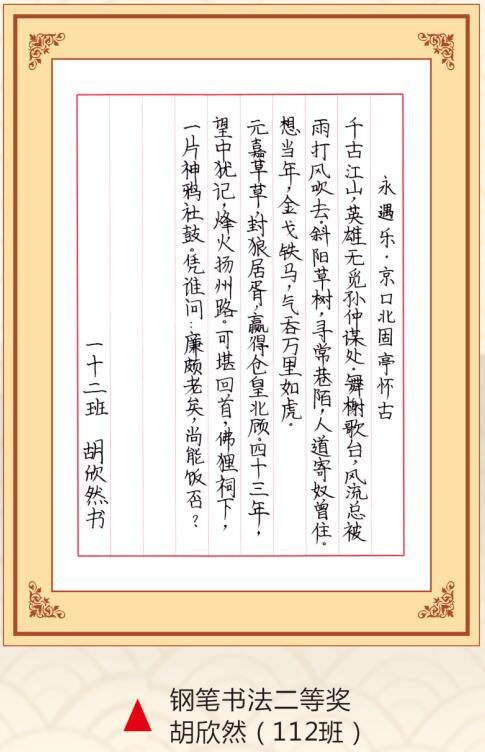 永遇乐·京口北固亭怀古
千古江山，英雄无觅孙仲谋处。舞榭歌台，风流总被
雨打风吹去。斜阳草树，寻常巷陌，人道寄奴曾住。
想当年，金戈铁马，气吞万里如虎。
元嘉草草，封狼居胥，赢得仓皇北顾。四十三年，
望中犹记，烽火扬州路。可堪回首，佛狸祠下，
一片神鸦社鼓。凭谁问：廉颇老矣，尚能饭否？
一十二班 胡欣然书
钢笔书法二等奖
胡欣然（112班）